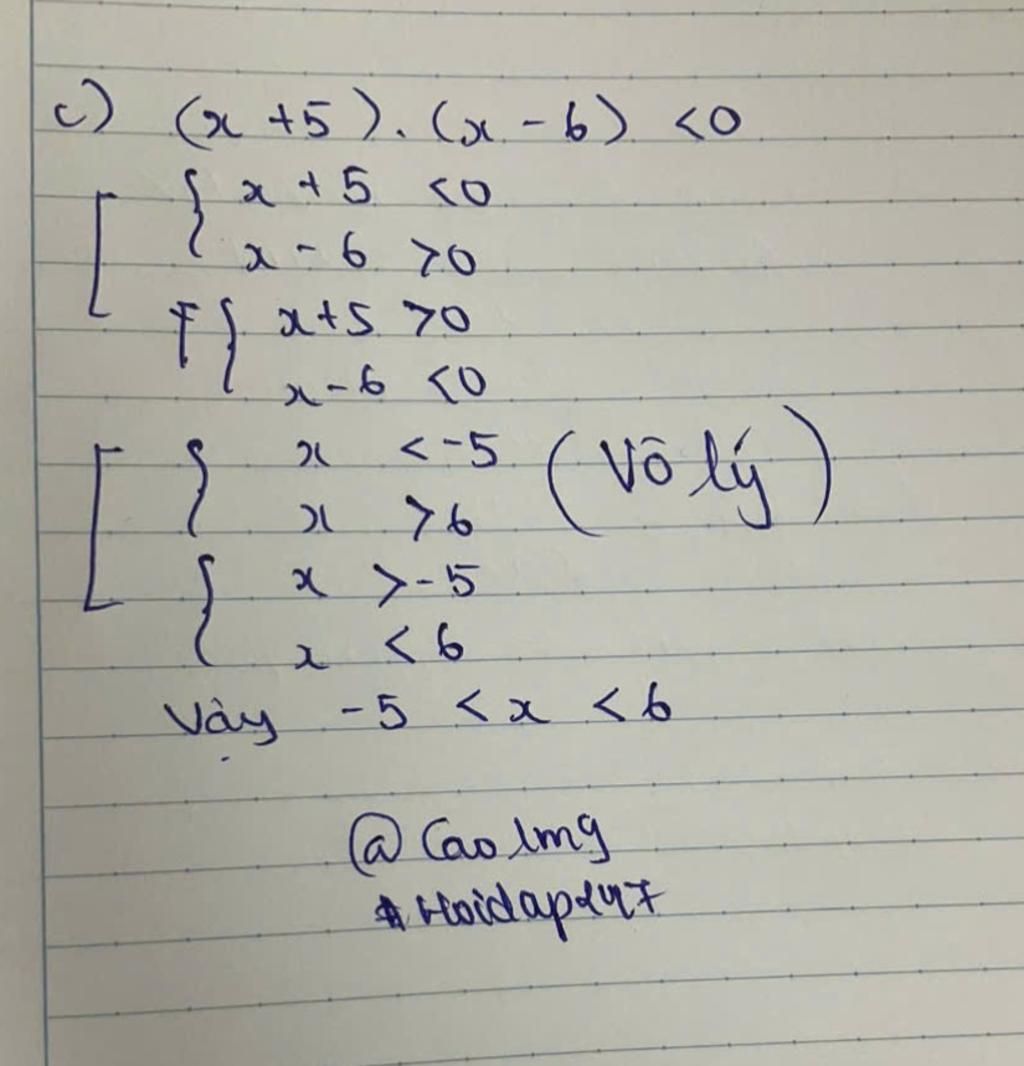 c) (x + 5). (x - 6) < 0
[ { x + 5 < 0
x - 6 > 0
{ x + 5 > 0
x - 6 < 0
[ { x < -5 (Vô lý)
x > 6
{ x > -5
x < 6
Vậy -5 < x < 6
@ Cao lmg
# Hoidap247